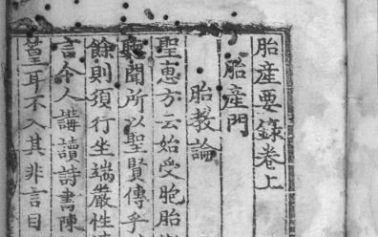 胎産要錄卷上
胎産門
胎教論
聖惠方云始受胞胎
聞所以聖賢傳乎
餘則須行坐端嚴性
言令人講讀詩書陳
耳不入其非言目